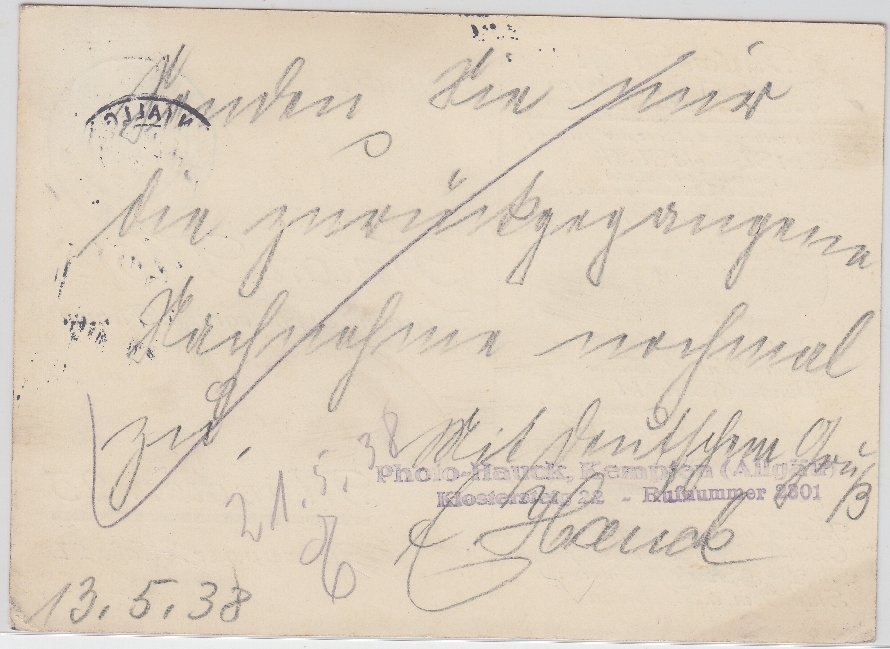 Senden Sie mir
die zurückgegangene
Nachnahme nochmal
zu.
Mit Deutschem Gruß
Photo-Hauck, Kempten (Allgäu)
Klosterstg. 22 - Rufnummer 2801
Hauck
21.5.38
13.5.38